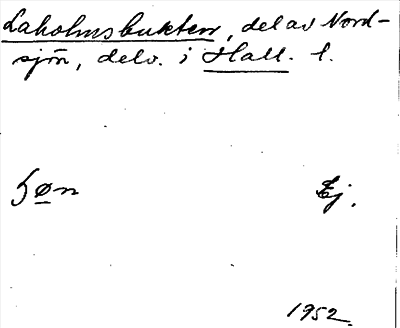 Laholmsbukten, del av Nord-
sjön, delv. i Hall. l.
Ej.
1952.